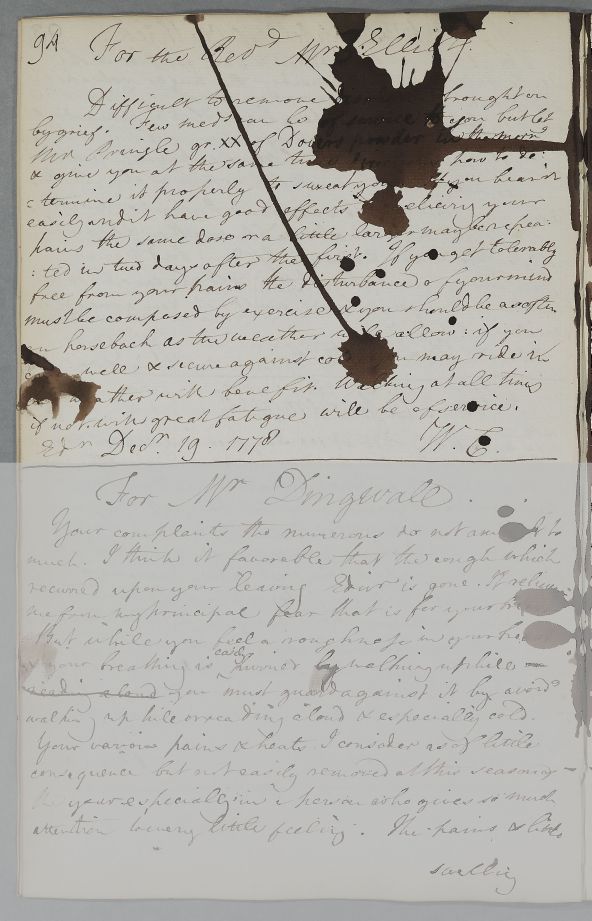 94 For the Revd Mrs Elliot.
Difficult to remove brought on
by grief. Few medicines can be of service to you but let
Mr Pringle gr. XX of Dovers powder in the morng
& give you at the same time how to de
:termine it properly to sweat you bear it
easily and it have good effects relieving your
pains the same dose or a little larger may be repea:
:ted in two days after the first. If you get tolerably
free from your pains the disturbance of your mind
must be composed by exercise & you should be as often
on horseback as the weather will allow: if you
well & secure against cold you may ride in
weather with benefit. Walking at all times
if not with great fatigue will be of service.
Edr Decr. 19. 1778 W. C.
For Mr Dingwall.
Your complaints tho numerous do not amount to
much. I think it favorable that the cough which
recurred upon your leaving Edinr is gone. It relieves
me from my principal fear that is for your
But while you feel a roughness in your
or your breathing is easily hurried by walking up hill
reading aloud you must guard against it by avoidg
walking up hill or reading aloud & especially cold.
Your various pains & heats I consider as of little
consequence but not easily removed at this season of
the year especially in a person who gives so much
attention to every little feeling. The pains & little
swelling